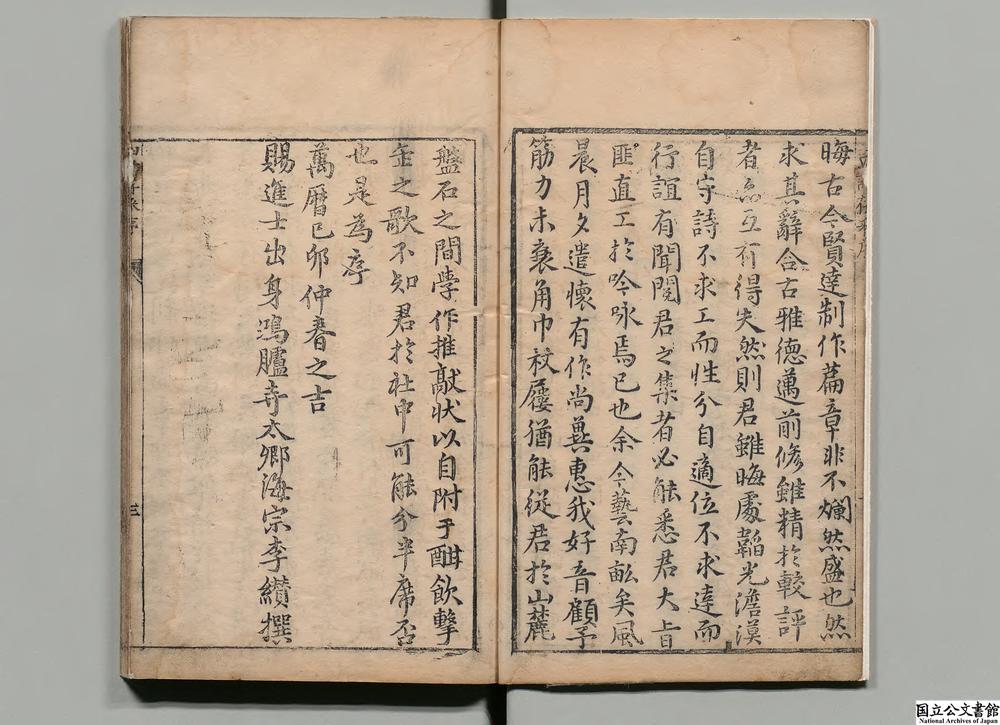 晦古今賢達制作篇章非不爛然盛也然
求其辭合古雅德邁前修雖精於較評
者亦互有得失然則君雖晦處韜光澹漠
自守詩不求工而性分自適位不求達而
行誼有聞閱君之集者必能悉君大旨
匪直工於吟咏焉已也余今藝南畝矣風
晨月夕遣懷有作尚冀惠我好音顧予
筋力未衰角巾杖屨猶能從君於山麓
盤石之間學作推敲狀以自附于酣飲擊
缶之歌不知君於社中可能分半席否
也是為序
萬曆己卯仲春之吉
賜進士出身鴻臚寺太卿海宗李纘撰
三
国立公文書館
National Archives of Japan